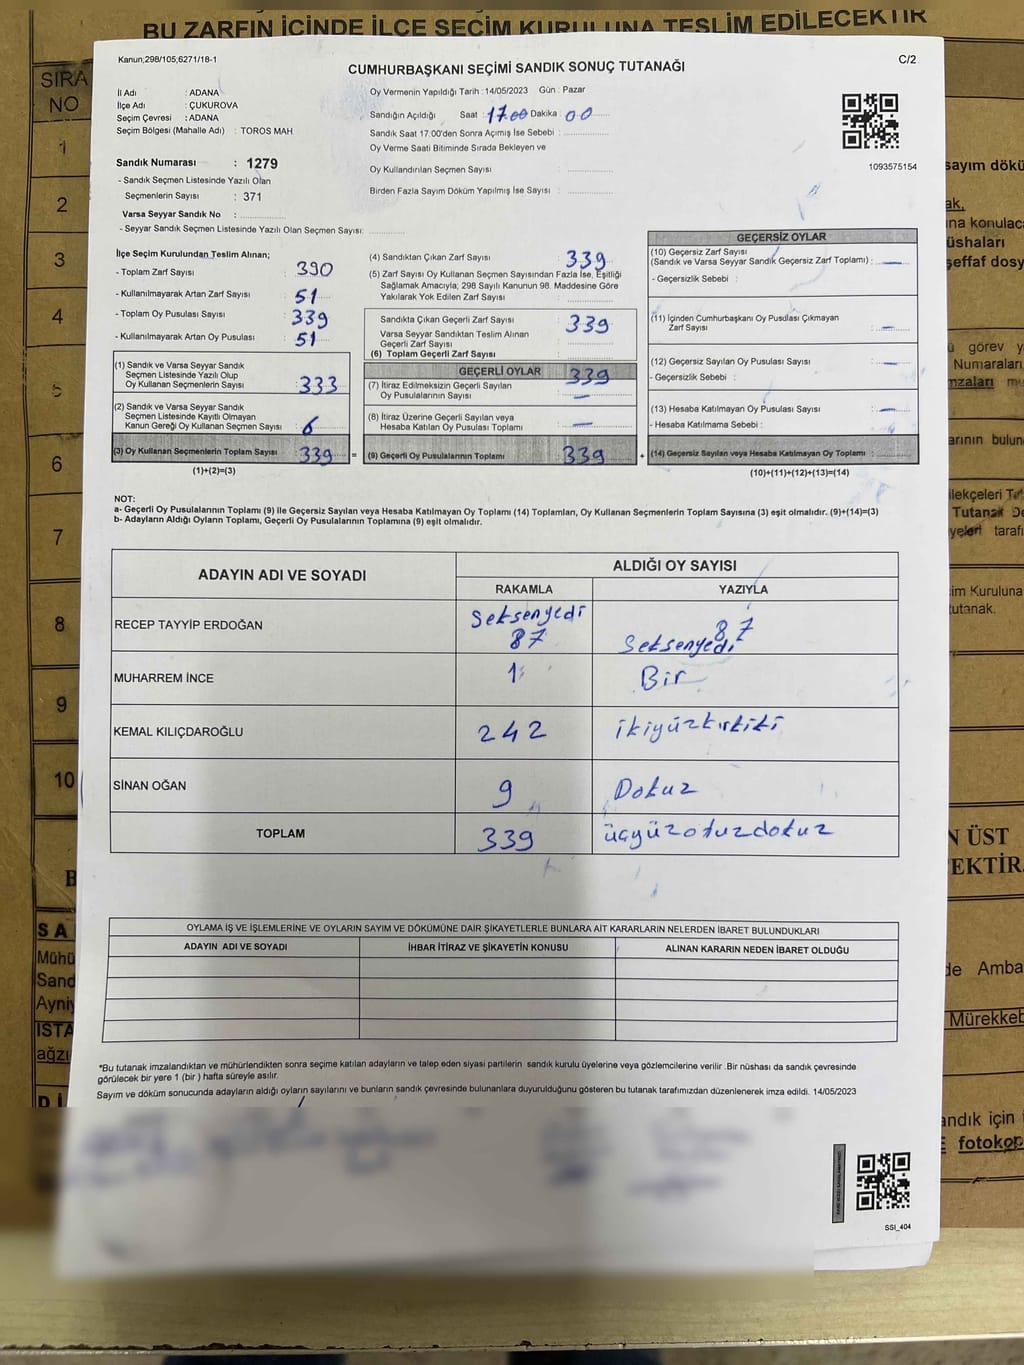 BU ZARFIN İÇİNDE İLÇE SEÇİM KURULUNA TESLİM EDİLECEKTİR
SIRA
NO
1
2
3
4
5
6
7
8
9
10
Kanun;298/105,6271/18-1
CUMHURBAŞKANI SEÇİMİ SANDIK SONUÇ TUTANAĞI
C/2
İl Adı : ADANA
İlçe Adı : ÇUKUROVA
Seçim Çevresi : ADANA
Seçim Bölgesi (Mahalle Adı) : TOROS MAH
Oy Vermenin Yapıldığı Tarih :14/05/2023 Gün : Pazar
Sandığın Açıldığı Saat 17.00 Dakika : 00
Sandık Saat 17.00'den Sonra Açmış İse Sebebi :
Oy Verme Saati Bitiminde Sırada Bekleyen ve
Oy Kullandırılan Seçmen Sayısı :
Birden Fazla Sayım Döküm Yapılmış İse Sayısı :
1093575154
Sandık Numarası : 1279
- Sandık Seçmen Listesinde Yazılı Olan
Seçmenlerin Sayısı : 371
Varsa Seyyar Sandık No :
- Seyyar Sandık Seçmen Listesinde Yazılı Olan Seçmen Sayısı:
İlçe Seçim Kurulundan Teslim Alınan;
- Toplam Zarf Sayısı : 390
- Kullanılmayarak Artan Zarf Sayısı : 51
- Toplam Oy Pusulası Sayısı : 339
- Kullanılmayarak Artan Oy Pusulası : 51
(1) Sandık ve Varsa Seyyar Sandık
Seçmen Listesinde Yazılı Olup
Oy Kullanan Seçmenlerin Sayısı : 333
(2) Sandık ve Varsa Seyyar Sandık
Seçmen Listesinde Kayıtlı Olmayan
Kanun Gereği Oy Kullanan Seçmen Sayısı : 6
(3) Oy Kullanan Seçmenlerin Toplam Sayısı : 339 =
(1)+(2)=(3)
(4) Sandıktan Çıkan Zarf Sayısı : 339
(5) Zarf Sayısı Oy Kullanan Seçmen Sayısından Fazla İse, Eşitliği
Sağlamak Amacıyla; 298 Sayılı Kanunun 98. Maddesine Göre
Yakılarak Yok Edilen Zarf Sayısı :
Sandıkta Çıkan Geçerli Zarf Sayısı : 339
Varsa Seyyar Sandıktan Teslim Alınan
Geçerli Zarf Sayısı :
(6) Toplam Geçerli Zarf Sayısı :
GEÇERLİ OYLAR 339
(7) İtiraz Edilmeksizin Geçerli Sayılan
Oy Pusulalarının Sayısı : —
(8) İtiraz Üzerine Geçerli Sayılan veya
Hesaba Katılan Oy Pusulası Toplamı : —
(9) Geçerli Oy Pusulalarının Toplamı : 339 +
GEÇERSİZ OYLAR
(10) Geçersiz Zarf Sayısı
(Sandık ve Varsa Seyyar Sandık Geçersiz Zarf Toplamı) : —
- Geçersizlik Sebebi :
(11) İçinden Cumhurbaşkanı Oy Pusulası Çıkmayan
Zarf Sayısı : —
(12) Geçersiz Sayılan Oy Pusulası Sayısı : —
- Geçersizlik Sebebi :
(13) Hesaba Katılmayan Oy Pusulası Sayısı : —
- Hesaba Katılmama Sebebi :
(14) Geçersiz Sayılan veya Hesaba Katılmayan Oy Toplamı :
(10)+(11)+(12)+(13)=(14)
NOT:
a- Geçerli Oy Pusulalarının Toplamı (9) ile Geçersiz Sayılan veya Hesaba Katılmayan Oy Toplamı (14) Toplamları, Oy Kullanan Seçmenlerin Toplam Sayısına (3) eşit olmalıdır. (9)+(14)=(3)
b- Adayların Aldığı Oyların Toplamı, Geçerli Oy Pusulalarının Toplamına (9) eşit olmalıdır.
ADAYIN ADI VE SOYADI
ALDIĞI OY SAYISI
RAKAMLA YAZIYLA
RECEP TAYYİP ERDOĞAN Seksenyedi 87 87 Seksenyedi
MUHARREM İNCE 1 Bir
KEMAL KILIÇDAROĞLU 242 ikiyüzkırkiki
SİNAN OĞAN 9 Dokuz
TOPLAM 339 üçyüzotuzdokuz
OYLAMA İŞ VE İŞLEMLERİNE VE OYLARIN SAYIM VE DÖKÜMÜNE DAİR ŞİKAYETLERLE BUNLARA AİT KARARLARIN NELERDEN İBARET BULUNDUKLARI
ADAYIN ADI VE SOYADI İHBAR İTİRAZ VE ŞİKAYETİN KONUSU ALINAN KARARIN NEDEN İBARET OLDUĞU
*Bu tutanak imzalandıktan ve mühürlendikten sonra seçime katılan adayların ve talep eden siyasi partilerin sandık kurulu üyelerine veya gözlemcilerine verilir. Bir nüshası da sandık çevresinde
görülecek bir yere 1 (bir) hafta süreyle asılır.
Sayım ve döküm sonucunda adayların aldığı oyların sayılarını ve bunların sandık çevresinde bulunanlara duyurulduğunu gösteren bu tutanak tarafımızdan düzenlenerek imza edildi. 14/05/2023
SSI_404
sayım dökü
ak,
na konulac
üshaları
şeffaf dosy
ü görev y
Numaraları
mzaları mu
arının bulun
lekçeleri
Tutanak
yeleri tarafı
im Kuruluna
tutanak.
N ÜST
EKTİR.
de Amba
Mürekkeb
andık için
E fotokop
B
SA
Mühü
Sand
Ayniy
İSTA
ağzı